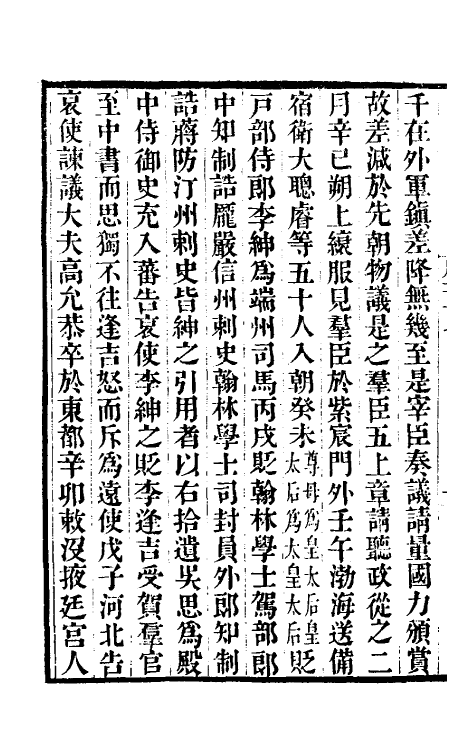 千在外軍鎮差降無幾至是宰臣奏議請量國力頒賞
故差減於先朝物議是之羣臣五上章請聽政從之二
月辛巳朔上縗服見羣臣於紫宸門外壬午渤海送備
宿衛大聰睿等五十人入朝癸未尊母爲皇太后皇太后爲太皇太后貶
戸部侍郎李紳爲端州司馬丙戌貶翰林學士駕部郎
中知制誥龎嚴信州刺史翰林學士司封員外郎知制
誥蔣防汀州刺史皆紳之引用者以右拾遺吳思爲殿
中侍御史充入蕃告哀使李紳之貶李逢吉受賀羣官
至中書而思獨不往逢吉怒而斥爲遠使戊子河北告
哀使諫議大夫高允恭卒於東都辛卯敕沒掖廷宮人